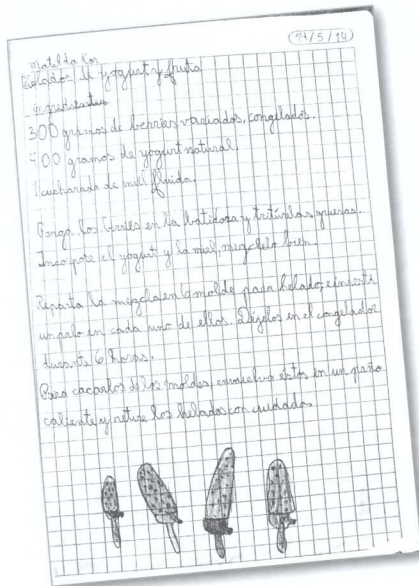 14/5/14
Matilda
helados de yogurt y fruta
ingredientes
300 gramos de berries variados, congelados.
400 gramos de yogurt natural.
1 cucharada de miel fluida.
Ponga los berries en la batidora y tritúrelas gruesas.
Incorpore el yogurt y la miel, mezclelo bien.
Reparta la mezcla en 6 molde para helado, e inserte
un palo en cada uno de ellos. Déjelos en el congelador
durante 6 horas.
Para cacarlos de los moldes, envuelva estos en un paño
caliente y retire los helados con cuidado